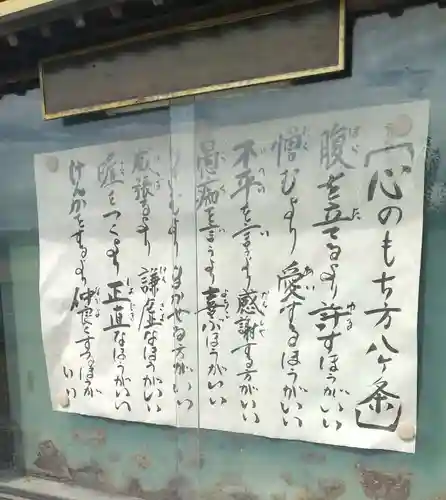 「心のもち方八ヶ条」
腹を立てるより許すほうがいい
憎むより愛するほうがいい
不平を言うより感謝する方がいい
愚痴を言うより喜ぶほうがいい
むより まかせる方がいい
威張るより謙虚なほうがいい
嘘をつくより正直なほうがいい
けんかをするより仲良くするほうがいい